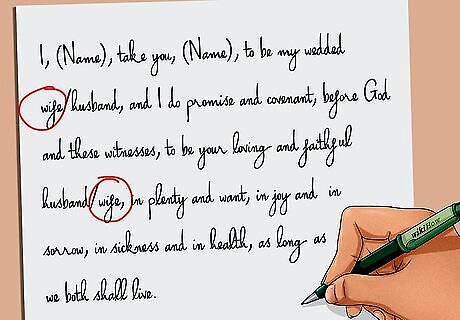 I, (Name), take you, (Name), to be my wedded
wife/husband, and I do promise and covenant, before God
and these witnesses, to be your loving and faithful
husband/wife, in plenty and want, in joy and in
sorrow, in sickness and in health, as long as
we both shall live.
wikiHow